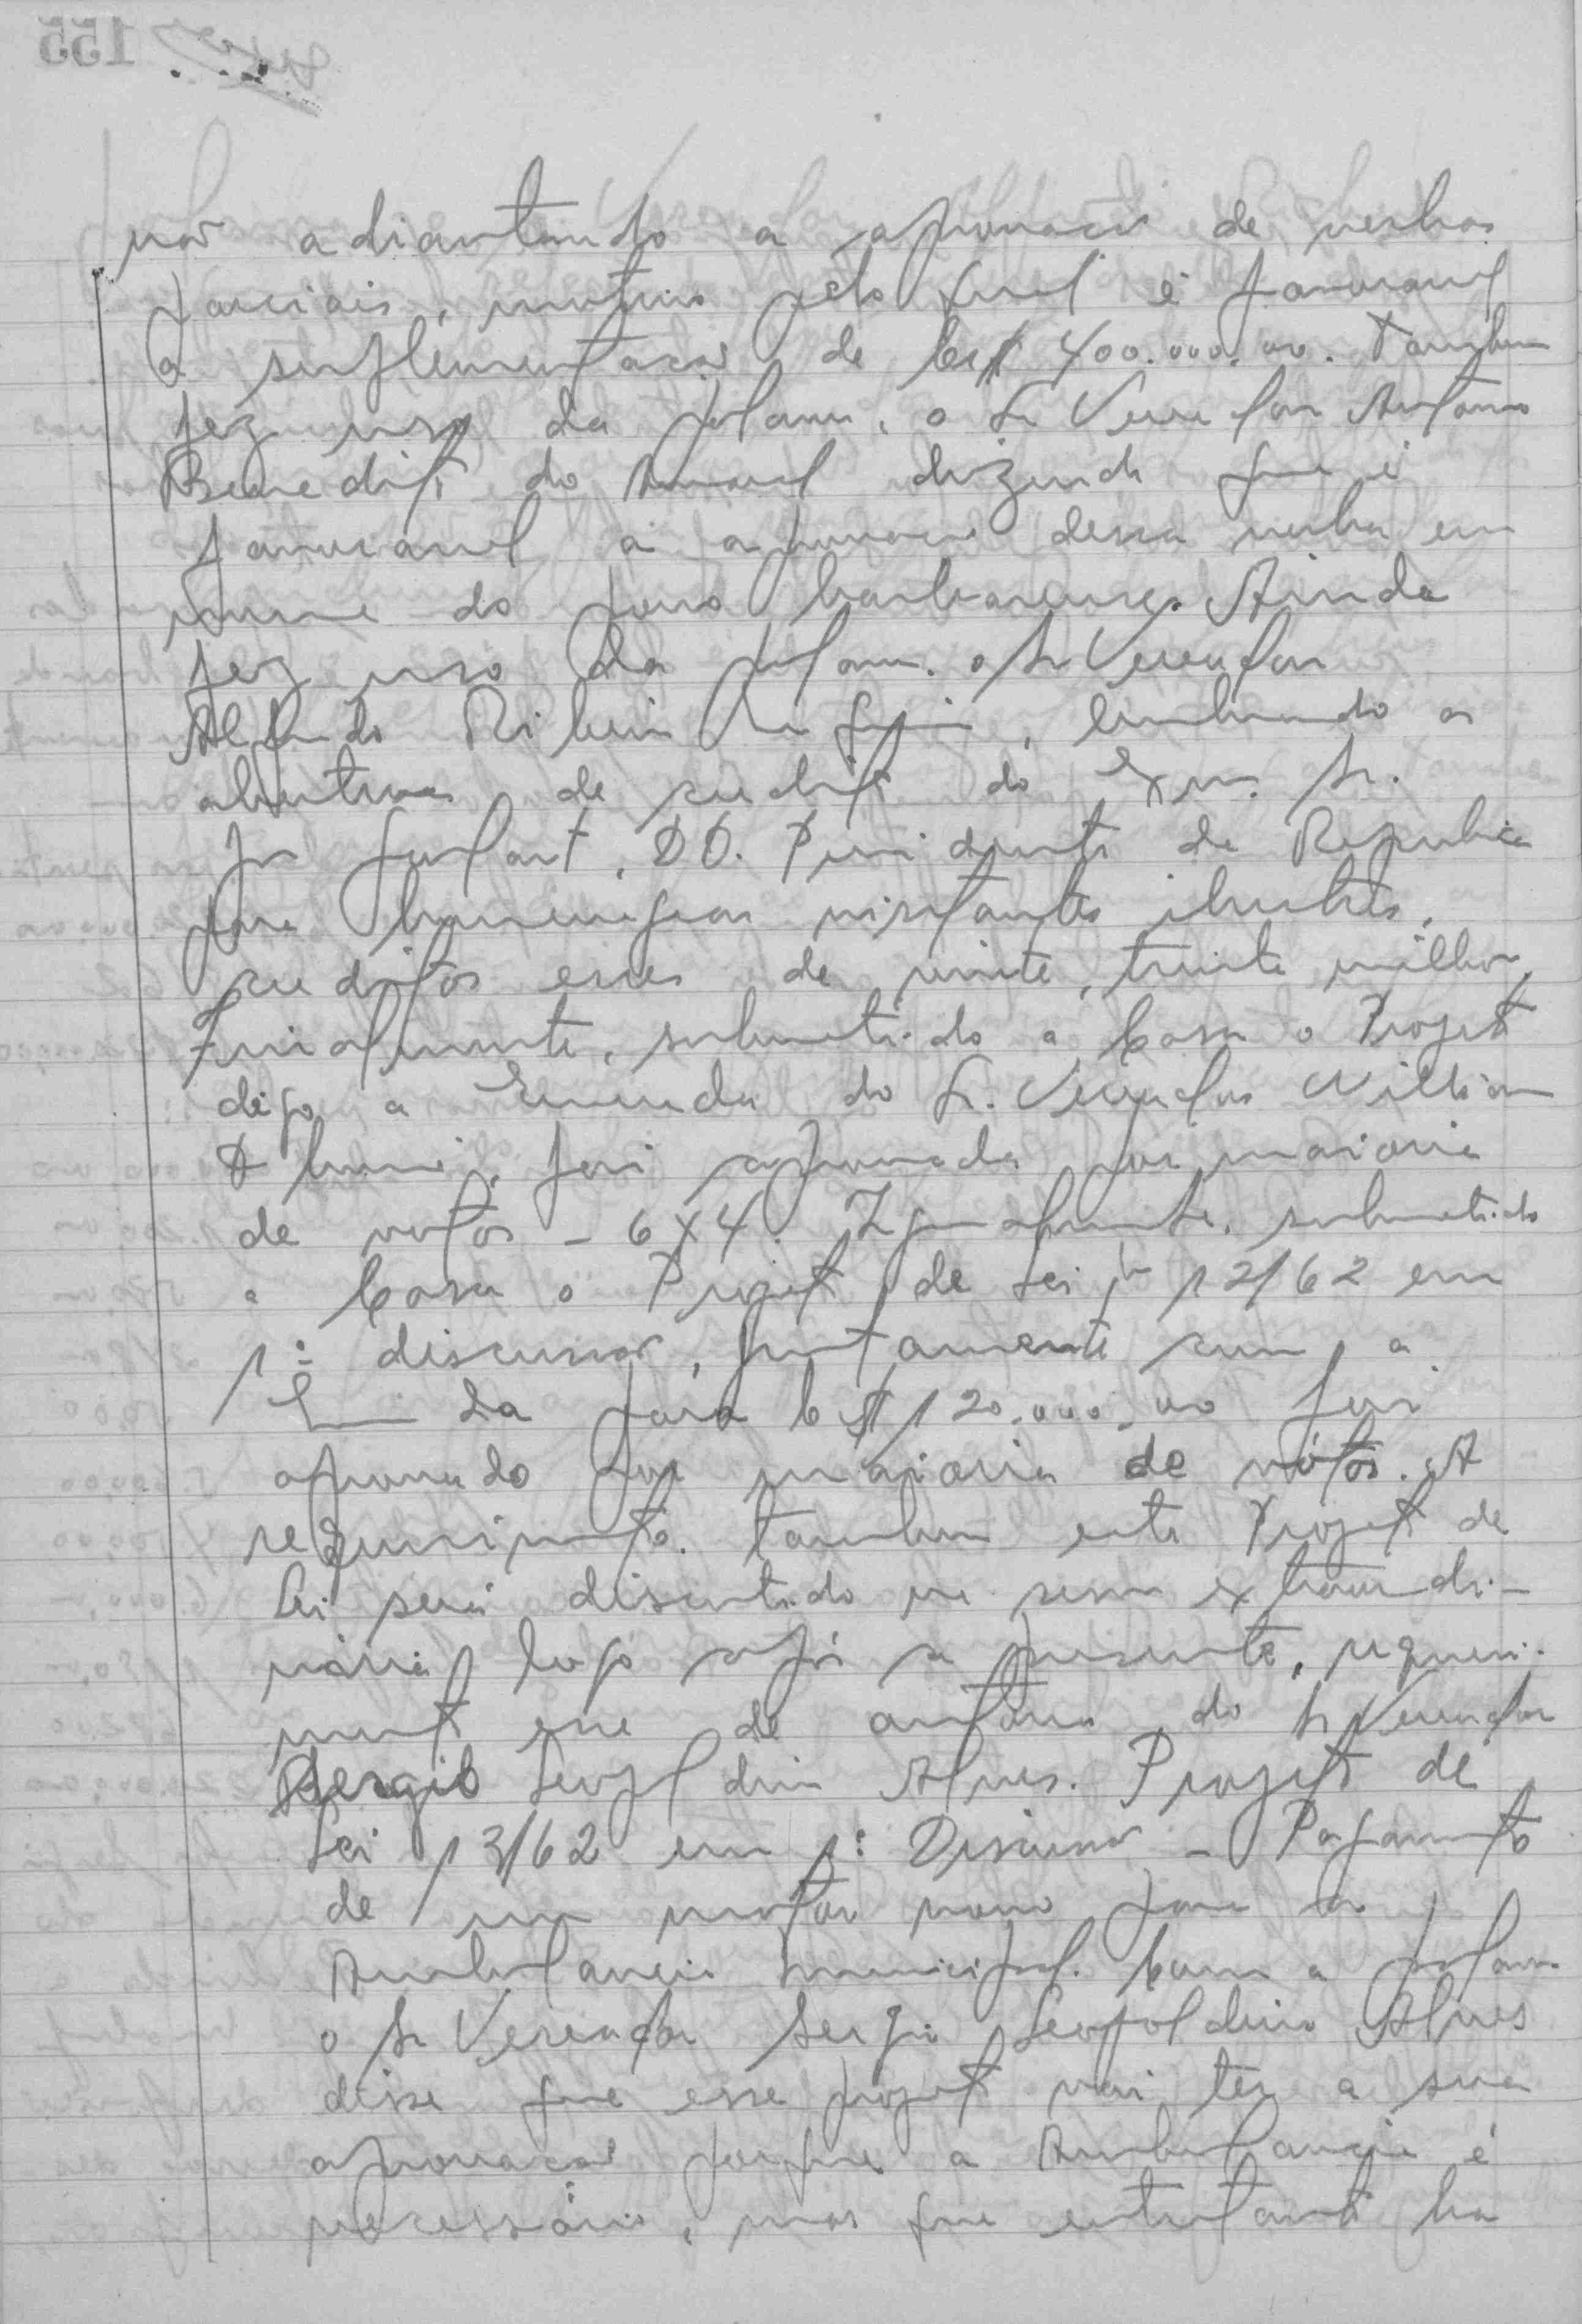 não adiantando a aprovação de verbas
parciais, motivo pelo qual é favoravel
a suplementação de Cr$ 400.000,00. Tambem
fez uso da palavra, o Sr Vereador Antonio
Benedito do Amaral dizendo que é
favoravel a aprovação dessa verba em
nome do povo barbarense. Ainda
fez uso da palavra o Sr Vereador
Alfredo Ribeiro, lembrando as
aberturas de credito do Exmo. Sr.
Jo Goulart, DD. Presidente da Republica
para homenagear visitantes ilustres,
creditos esses de vinte, trinta milhões.
Finalmente, submetido a Casa o Projeto
digo a Emenda do Sr. Vereador Willian
foi aprovada por maioria
de votos - 6x4. Igualmente, submetido
a Casa o Projeto de Lei nº 12/62 em
1ª discussão, juntamente com a
Emenda para Cr$ 120.000,00 foi
aprovado por maioria de vótos. A
requerimento. tambem este Projeto de
Lei será discutido na sessão extraordi-
nária logo após a presente, requeri-
mento esse de autoria do Sr Vereador
Sergio Leopoldino Alves. Projeto de
Lei 13/62 em 1ª Discussão - Pagamento
de um motor novo para a
Ambulancia Municipal. Com a palavra
o Sr Vereador Sergio Leopoldino Alves
disse que esse projeto vai ter a sua
aprovação porque a Ambulancia é
necessária, mas que entretanto ha